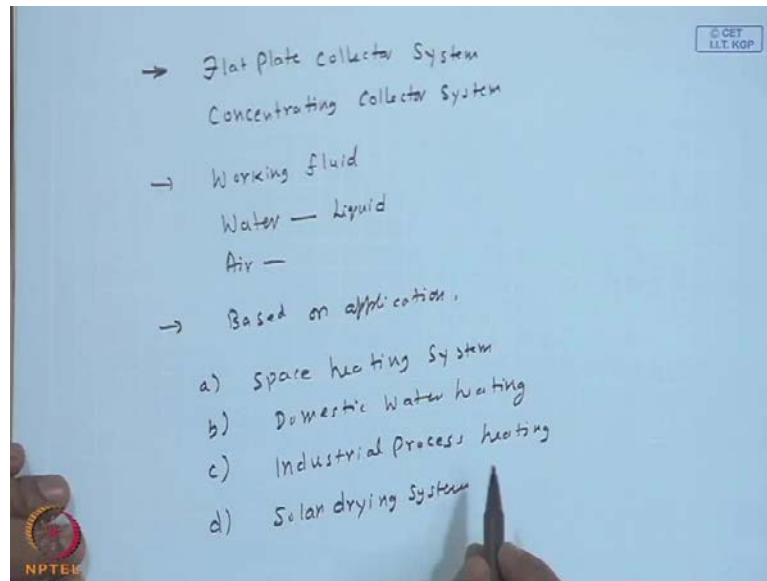 © CET
I.I.T. KGP
→ Flat Plate Collector System
Concentrating Collector System
→ Working fluid
Water — Liquid
Air —
→ Based on application.
a) Space heating System
b) Domestic Water heating
c) Industrial Process heating
d) Solar drying System
NPTEL